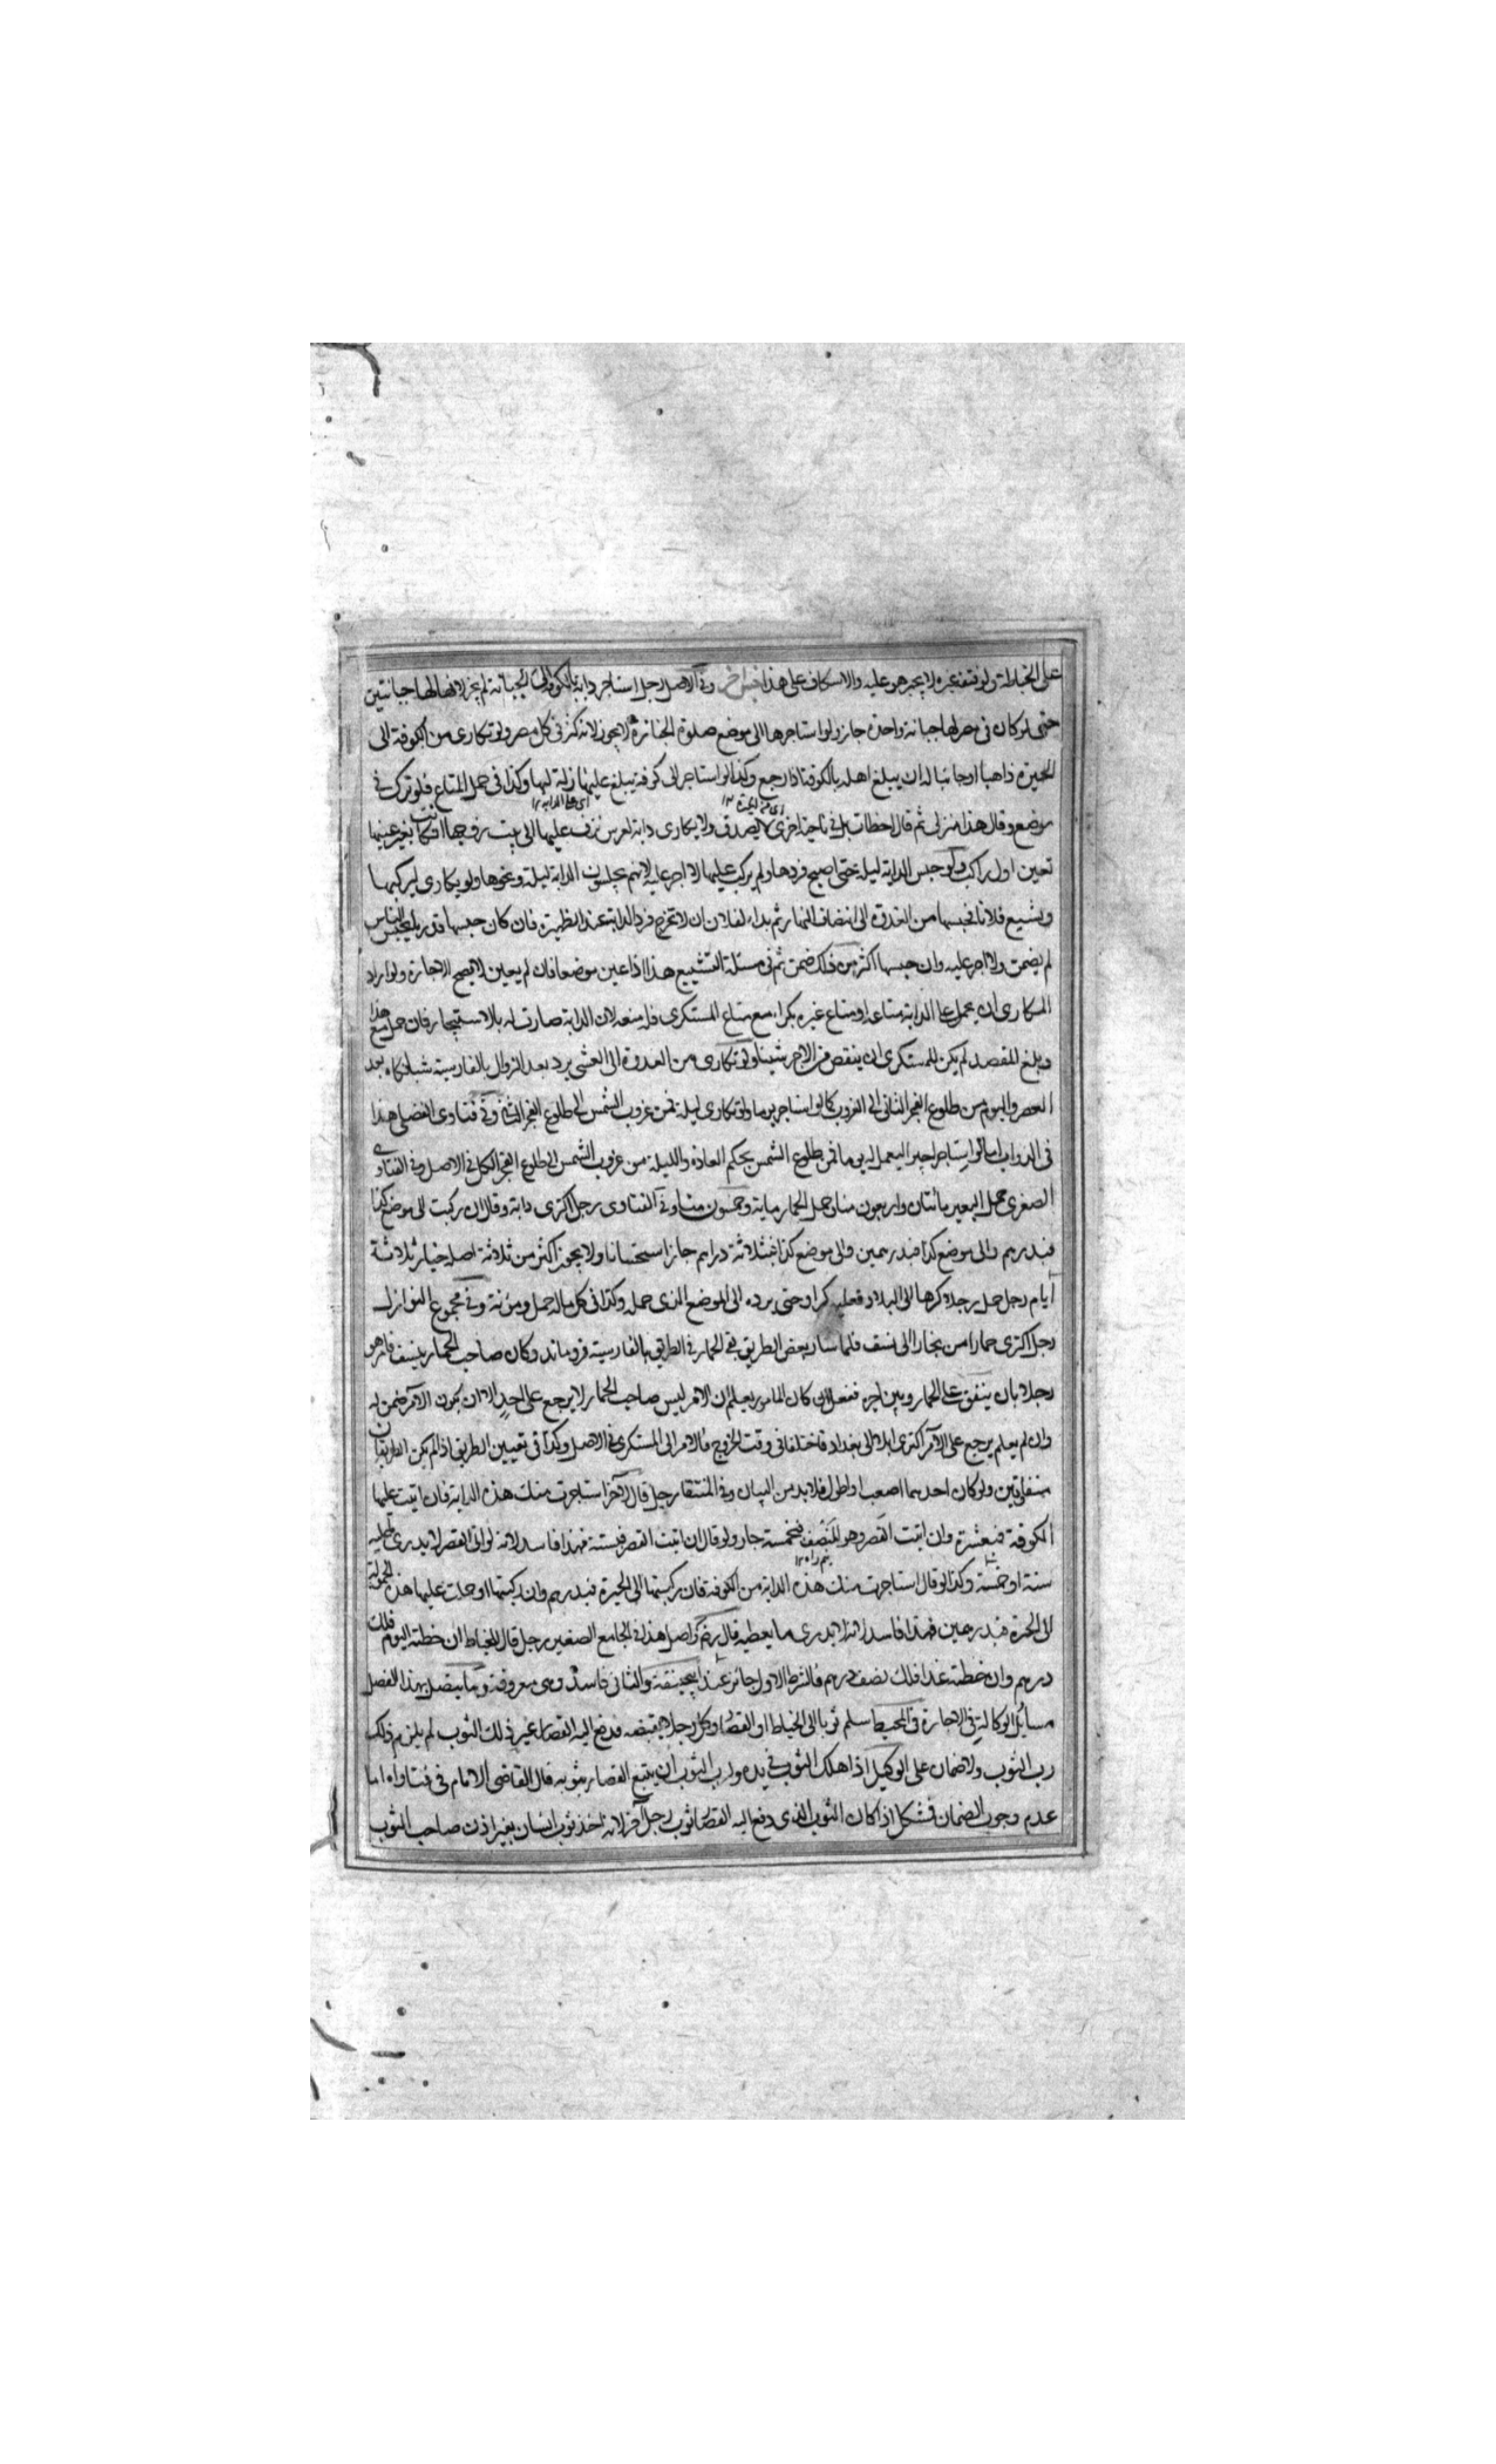 على الخياطة ولو فتقه غيره لا يجبر هو عليه والاسكاف على هذا جنس اخر وفي الاصل رجل استاجر دابة بالكوفة الى الجبانة لم يجز لان لها جبانتين
حتى لو كان في مصر لها جبانة واحدة جاز ولو استاجرها الى موضع صلوة الجنازة لا يجوز لانه كثر في كل مصر ولو تكارى من الكوفة الى
الحيرة ذاهبا او جائيا له ان يبلغ اهله بالكوفة اذا رجع وكذا لو استاجر الى كوفة يبلغ عليها منزله وكذا في حمل المتاع فلو ترك في
موضع وقال هذا منزلي ثم قال اخطات بل في ناحية اخرى لا يصدق ولو تكارى دابة لعرس تزف عليها الى بيت زوجها ان كانت بغير عينها
تعين اول راكب ولو حبس الدابة ليلة حتى اصبح فردها ولم يركب عليها لا اجر عليه لانهم يحبسون الدابة ليلة ونحوها ولو تكارى ليركبها
ويشيع فلانا فحبسها من الغدوة الى انتصاف النهار ثم بدا لفلان ان لا تخرج فرد الدابة عند الظهيرة فان كان حبسها قدر ما يحبس الناس
لم يضمن ولا اجر عليه وان حبسها اكثر من ذلك ضمن ثم في مسئلة التشييع هذا اذا عين موضعا فان لم يعين لا يصح الاجارة ولو اراد
المكاري ان يحمل على الدابة متاعه او متاع غيره بكراء مع متاع المستكري فله منعه لان الدابة صارت له بالاستيجار فان حمل مع هذا
وبلغ المقصد لم يكن للمستكري ان ينقص من الاجر شيئا ولو تكارى من الغدوة الى العشي يرد بعد الزوال بالفارسية شبانكاه بعد
العصر واليوم من طلوع الفجر الثاني الى الغروب كما لو استاجر يوما ولو تكارى ليلة فمن غروب الشمس الى طلوع الفجر الثاني وفي فتاوى الفضلي هذا
في الدواب اما لو استاجر اجيرا ليعمل له يوما فمن طلوع الشمس بحكم العادة والليلة من غروب الشمس الى طلوع الفجر الكل في الاصل وفي الفتاوى
الصغرى حمل البعير مائتان واربعون منا وحمل الحمار ماية وخمسون منا وفي الفتاوى رجل اكترى دابة وقال ان ركبت الى موضع كذا
فبدرهم والى موضع كذا فبدرهمين والى موضع كذا فبثلاثة دراهم جاز استحسانا ولا يجوز اكثر من ثلاثة اصله خيار ثلاثة
ايام رجل حمل رجلا كرها الى البلاد فعليه كراؤه حتى يرده الى الموضع الذي حمله وكذا في كل ماله حمل ومؤنة وفي مجموع النوازل
رجل اكترى حمارا من بخارا الى نسف فلما سار بعض الطريق بقي الحمار في الطريق بالفارسية فروماند وكان صاحب الحمار بنسف فامر هو
رجلا بان ينفق على الحمار وبين اجره ففعل ان كان المامور يعلم ان الامر ليس صاحب الحمار لا يرجع على احد الا ان يكون الآمر ضمن له
وان لم يعلم يرجع على الآمر اكترى ابلا الى بغداد فاختلفا في وقت الخروج فالامر الى المستكري في الاصل وكذا في تعيين الطريق اذا لم يكن الطريقان
متفاوتين ولو كان احدهما اصعب او اطول فلا بد من البيان وفي المنتقى رجل قال لآخر استاجرت منك هذه الدابة فان اتيت عليها
الكوفة فبعشرة وان اتيت القصر وهو المنصف فبخمسة جاز ولو قال ان اتيت القصر فبستة فهذا فاسد لانه لو اتى القصر لا يدري عليه
ستة او خمسة وكذا لو قال استاجرت منك هذه الدابة من الكوفة فان ركبتها الى الحيرة فبدرهم وان ركبتها او حملت عليها هذه الحمولة
الى الحيرة فبدرهمين فهذا فاسد لانه لا يدري ما يعطيه قال واصل هذا في الجامع الصغير رجل قال لخياط ان خطته اليوم فلك
درهم وان خطته غدا فلك نصف درهم فالشرط الاول جائز عند ابي حنيفة والثاني فاسد وهي معروفة وما يتصل بهذا الفصل
مسايل الوكالة في الاجارة في المحيط سلم ثوبا الى الخياط او القصار وكل رجلا بقبضه فدفع اليه القصار غير ذلك الثوب لم يلزم ذلك
رب الثوب ولا ضمان على الوكيل اذا هلك الثوب في يده ولرب الثوب ان يتبع القصار بثوبه قال القاضي الامام في فتاواه اما
عدم وجوب الضمان فمشكل اذا كان الثوب الذي دفع اليه القصار ثوب رجل آخر لانه اخذ ثوب انسان بغير اذن صاحب الثوب